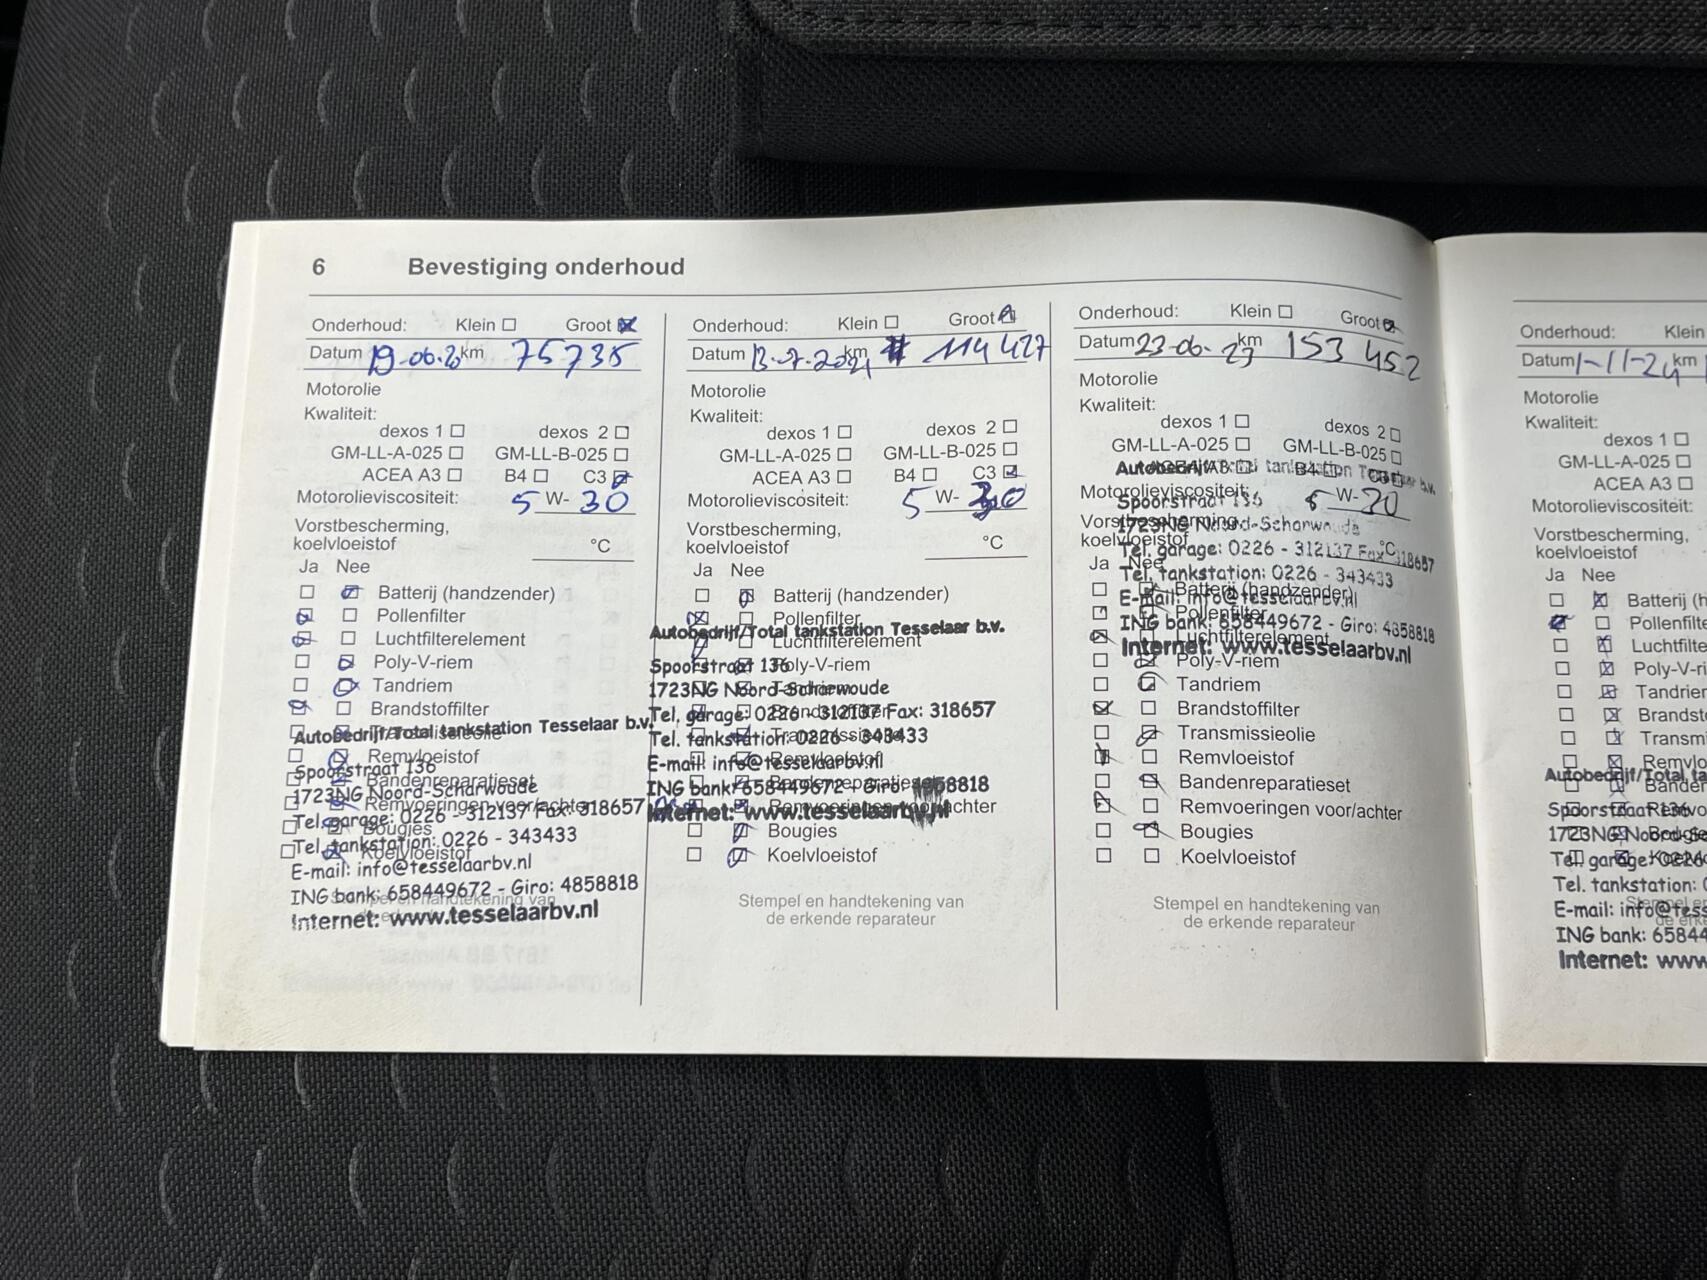 6 Bevestiging onderhoud
Onderhoud: Klein Groot
Datum 19-06-20 km 75735
Motorolie
Kwaliteit:
dexos 1 dexos 2
GM-LL-A-025 GM-LL-B-025
ACEA A3 B4 C3
Motorolieviscositeit: 5 W- 30
Vorstbescherming,
koelvloeistof °C
Ja Nee
Batterij (handzender)
Pollenfilter
Luchtfilterelement
Poly-V-riem
Tandriem
Brandstoffilter
Autobedrijf/Total tankstation Tesselaar b.v.
Transmissieolie
Remvloeistof
Spoorstraat 136
Bandenreparatieset
1723NG Noord-Scharwoude
Remvoeringen voor/achter
Tel. garage: 0226 - 312137 Fax: 318657
Bougies
Tel. tankstation: 0226 - 343433
Koelvloeistof
E-mail: info@tesselaarbv.nl
ING bank: 658449672 - Giro: 4858818
Stempel en handtekening van
Internet: www.tesselaarbv.nl
Onderhoud: Klein Groot
Datum 13-7-2021 km 114427
Motorolie
Kwaliteit:
dexos 1 dexos 2
GM-LL-A-025 GM-LL-B-025
ACEA A3 B4 C3
Motorolieviscositeit: 5 W- 30
Vorstbescherming,
koelvloeistof °C
Ja Nee
Batterij (handzender)
Pollenfilter
Autobedrijf/Total tankstation Tesselaar b.v.
Luchtfilterelement
Spoorstraat 136
Poly-V-riem
1723NG Noord-Scharwoude
Tandriem
Tel. garage: 0226 - 312137 Fax: 318657
Brandstoffilter
Tel. tankstation: 0226 - 343433
Transmissieolie
E-mail: info@tesselaarbv.nl
Remvloeistof
ING bank: 658449672 - Giro: 4858818
Bandenreparatieset
Internet: www.tesselaarbv.nl
Remvoeringen voor/achter
Bougies
Koelvloeistof
Stempel en handtekening van
de erkende reparateur
Onderhoud: Klein Groot
Datum 23-06-23 km 153452
Motorolie
Kwaliteit:
dexos 1 dexos 2
GM-LL-A-025 GM-LL-B-025
ACEA A3 B4 C3
Autobedrijf/Total tankstation
Motorolieviscositeit: 5 W- 30
Spoorstraat 136
Vorstbescherming,
1723NG Noord-Scharwoude
koelvloeistof °C
Tel. garage: 0226 - 312137 Fax: 318657
Ja Nee
Tel. tankstation: 0226 - 343433
Batterij (handzender)
E-mail: info@tesselaarbv.nl
Pollenfilter
ING bank: 658449672 - Giro: 4858818
Luchtfilterelement
Internet: www.tesselaarbv.nl
Poly-V-riem
Tandriem
Brandstoffilter
Transmissieolie
Remvloeistof
Bandenreparatieset
Remvoeringen voor/achter
Bougies
Koelvloeistof
Stempel en handtekening van
de erkende reparateur
Onderhoud: Klein
Datum 1-11-24 km
Motorolie
Kwaliteit:
dexos 1
GM-LL-A-025
ACEA A3
Motorolieviscositeit:
Vorstbescherming,
koelvloeistof
Ja Nee
Batterij (h
Pollenfilte
Luchtfilte
Poly-V-ri
Tandrie
Brandst
Transmi
Remvlo
Autobedrijf/Total ta
Banden
Spoorstraat 136
Remvo
1723NG Noord-Sc
Bougie
Tel. garage: 0226
Tel. tankstation:
E-mail: info@tess
ING bank: 6584
Internet: www